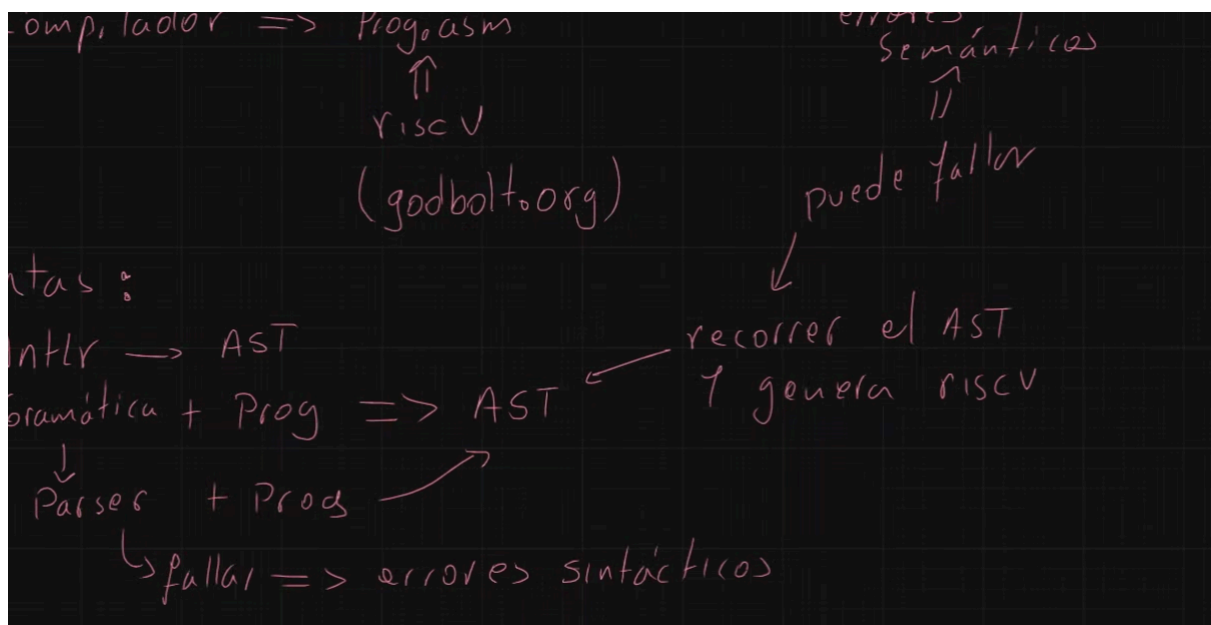 ompilador => Prog.asm
errores
semánticos
riscv
(godbolt.org)
puede fallar
ntas:
ntlr → AST
recorrer el AST
y genera riscv
Gramática + Prog => AST
Parser + Prog
fallar => errores sintácticos